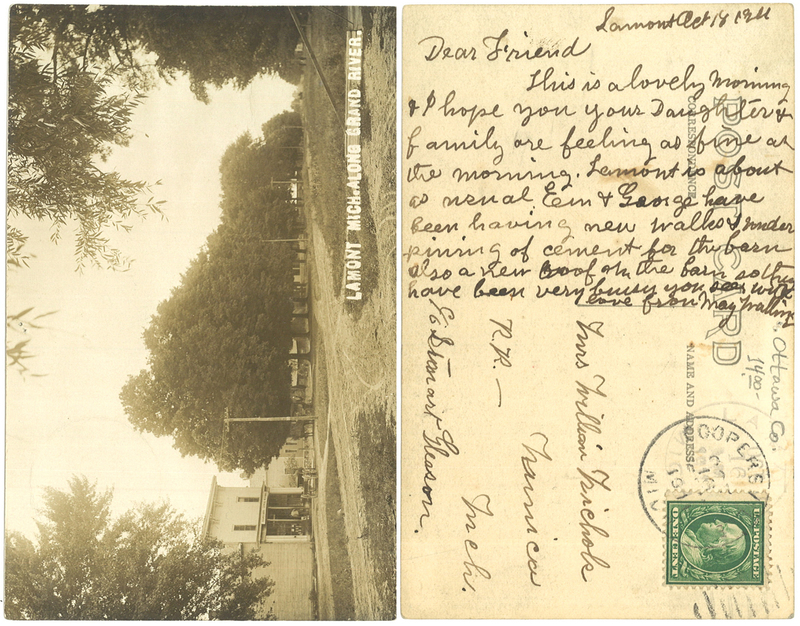 LAMONT MICH. ALONG GRAND RIVER.
Lamont Oct 18 1911
Dear Friend
This is a lovely morning
& I hope you your Daughter &
family are feeling as fine as
the morning. Lamont is about
as usual, Em & George have
been having new walks & under
pining of cement for the barn
also a new roof on the barn so they
have been very busy you see with
love from May
POST CARD
CORRESPONDENCE
NAME AND ADDRESS
Mrs William Nichols
Nunica
Mich.
R.R. —
℅ Stewart Gleason.
Ottawa Co.
14.00-
COOPERS
OCT
MICH
U.S. POSTAGE
ONE CENT